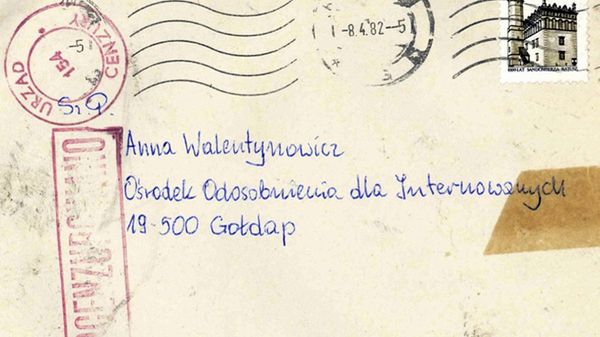 URZĄD CENZURY
154
-5
-8.4.82-5
1000 LAT SANDOMIERZA RATUSZ
Sz.P.
Anna Walentynowicz
Ośrodek Odosobnienia dla Internowanych
19-500 Gołdap
OCENZUROWANO